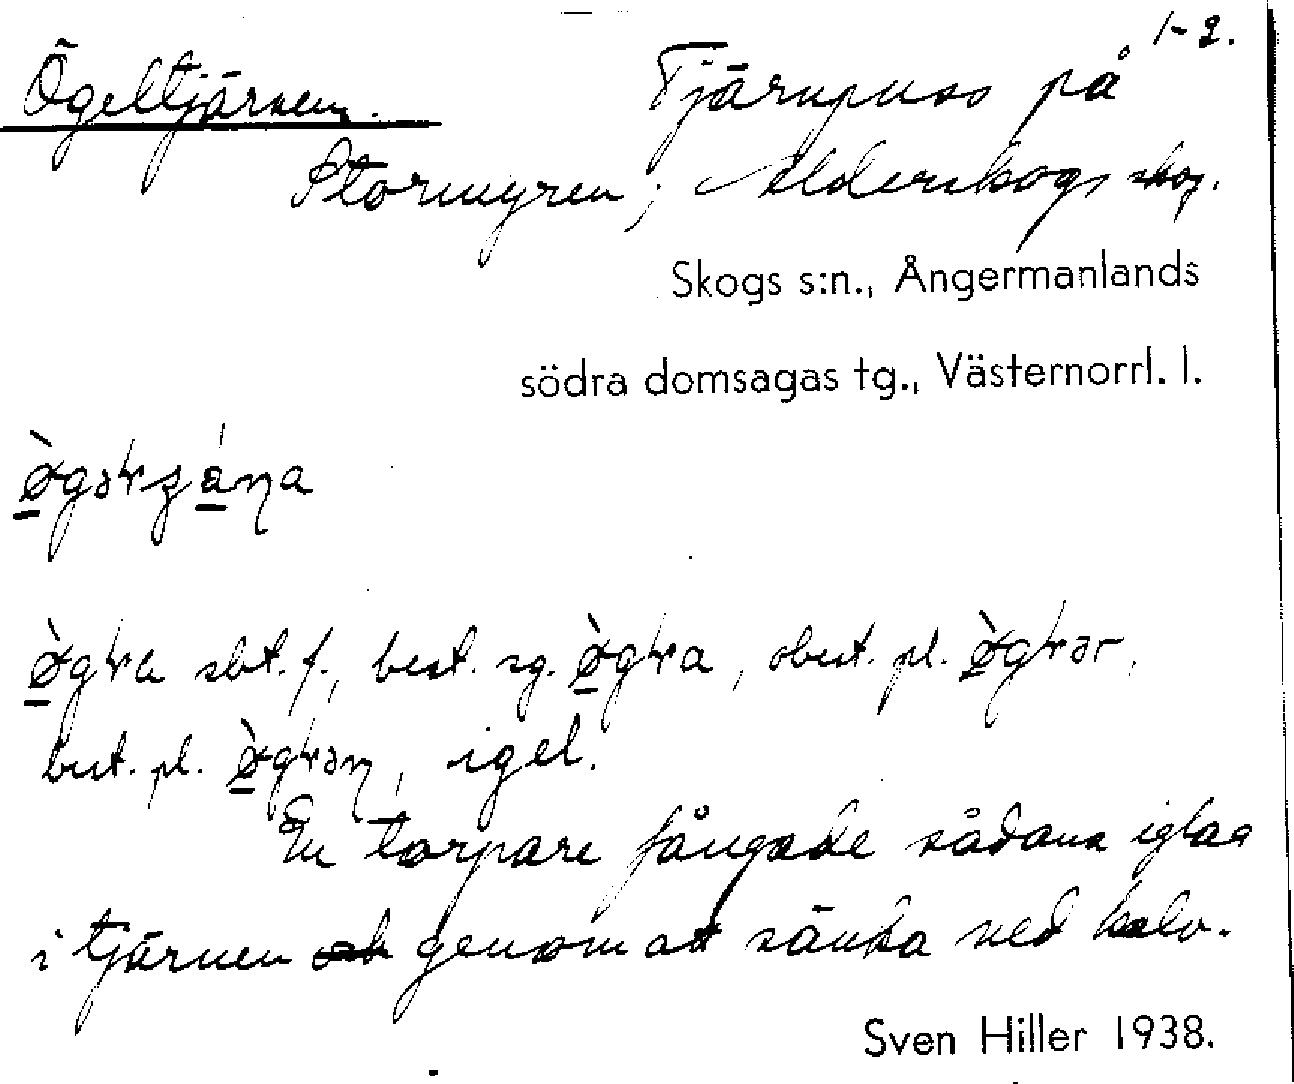 1-2.
Ögeltjärnen. Tjärnpuss på
Stormyren; Alderskogs skog.
Skogs s:n., Ångermanlands
södra domsagas tg., Västernorrl. l.
sbt. f., best. sg. , obest. pl.
best. pl. , igel.
En torpare fångade sådana iglar
i tjärnen genom att sänka ned kalv.
Sven Hiller 1938.